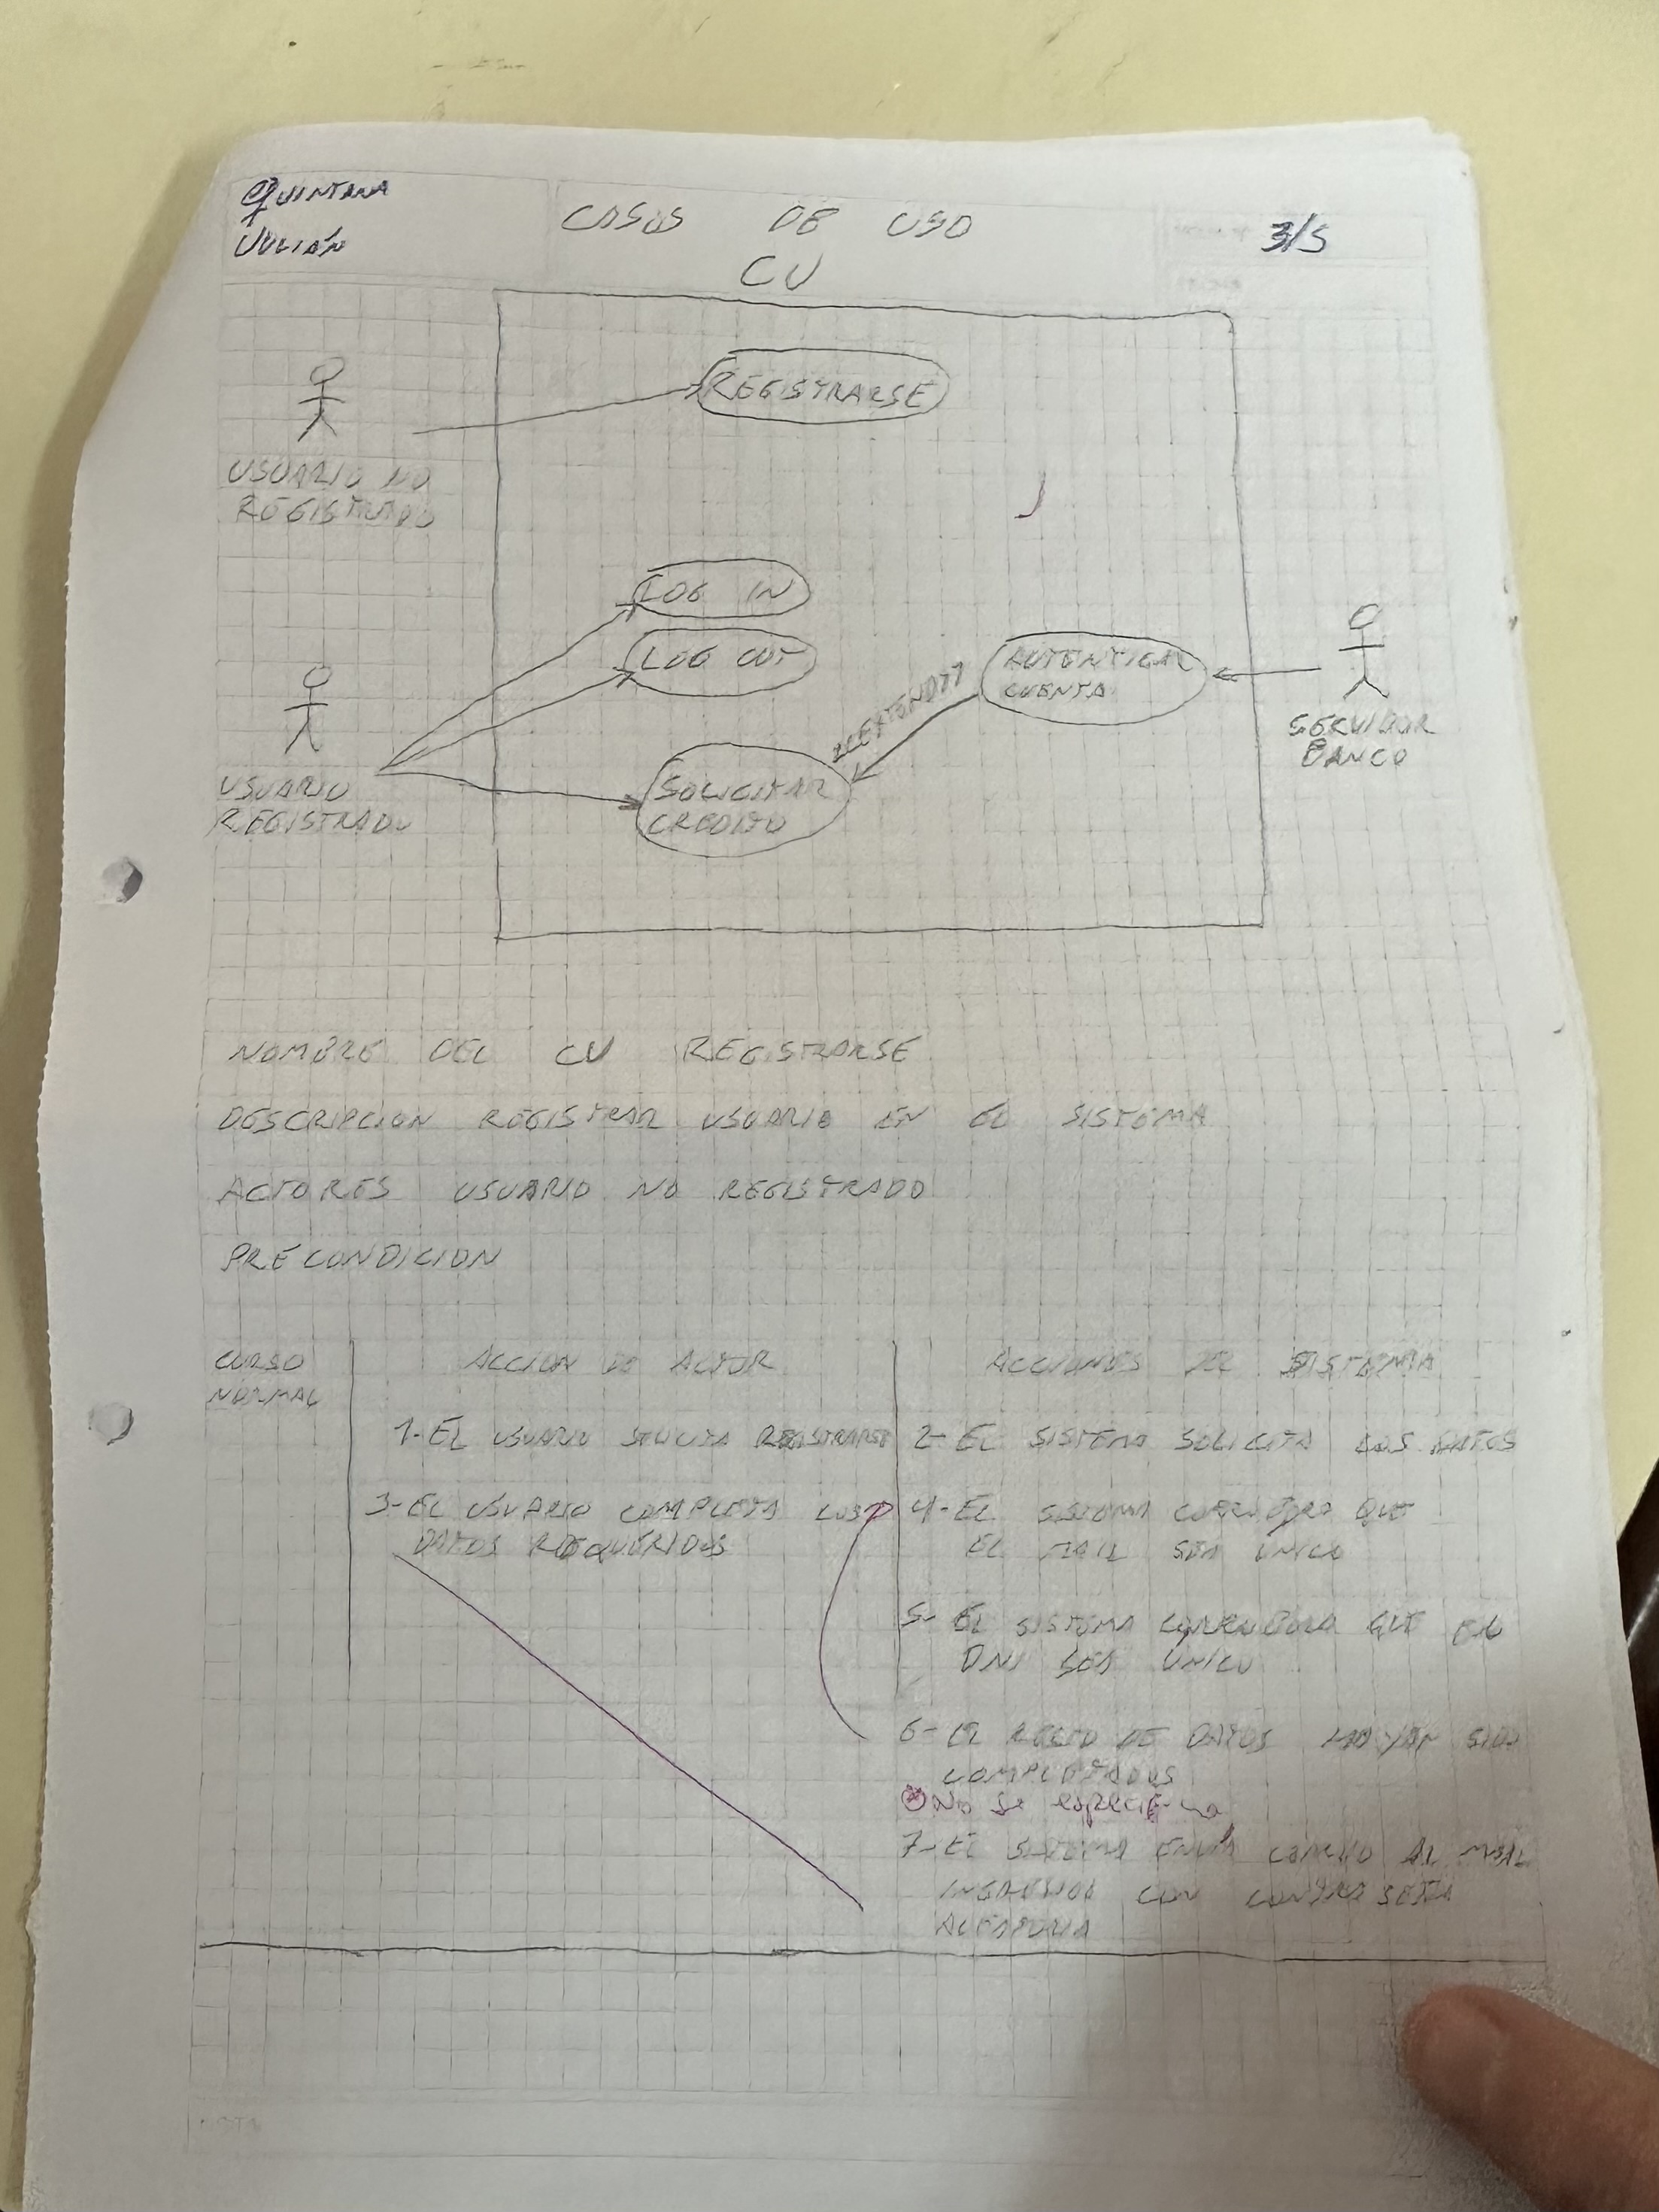 QUINTANA
JULIÁN
CASOS DE USO
3/5
CU
REGISTRARSE
USUARIO NO
REGISTRADO
LOG IN
LOG OUT
AUTENTICAR
CUENTA
<<EXTEND>>
SERVIDOR
BANCO
USUARIO
REGISTRADO
SOLICITAR
CREDITO
NOMBRE DEL CU REGISTRARSE
DESCRIPCION REGISTRAR USUARIO EN EL SISTEMA
ACTORES USUARIO NO REGISTRADO
PRECONDICION
CURSO
NORMAL
ACCION DE ACTOR
ACCIONES DEL SISTEMA
1-EL USUARIO SOLICITA REGISTRARSE
2-EL SISTEMA SOLICITA LOS DATOS
3-EL USUARIO COMPLETA LOS
DATOS REQUERIDOS
4-EL SISTEMA CORROBORA QUE
EL MAIL SEA UNICO
5- EL SISTEMA CORROBORA QUE EL
DNI SEA UNICO
6- EL RESTO DE DATOS HAYAN SIDO
COMPLETADOS
No se especifica
7-EL SISTEMA ENVIA CORREO AL MAIL
INGRESADO CON CONTRASEÑA
ALEATORIA
NOTA